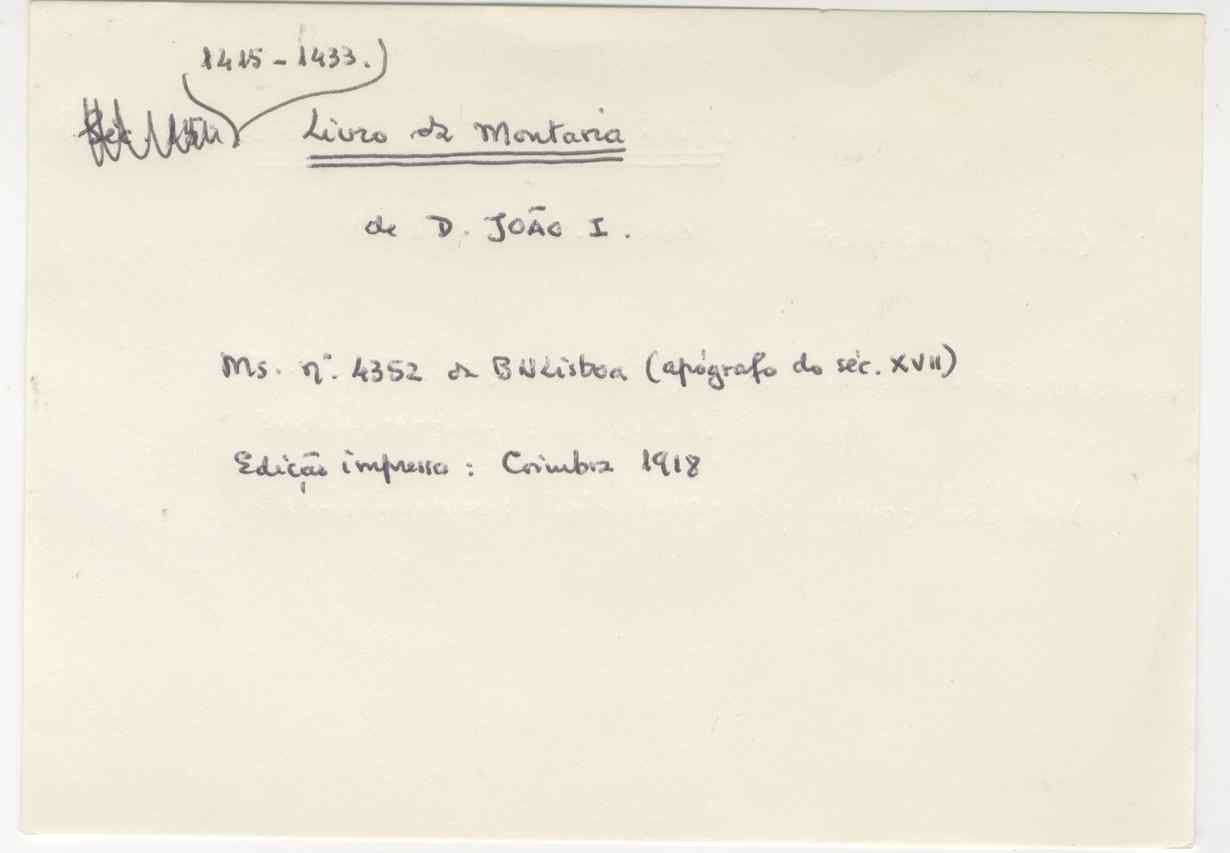 1415 - 1433.
Livro da Montaria
de D. JOÃO I.
Ms. nº. 4352 da BNLisboa (apógrafo do séc. XVII)
Edição impressa : Coimbra 1918